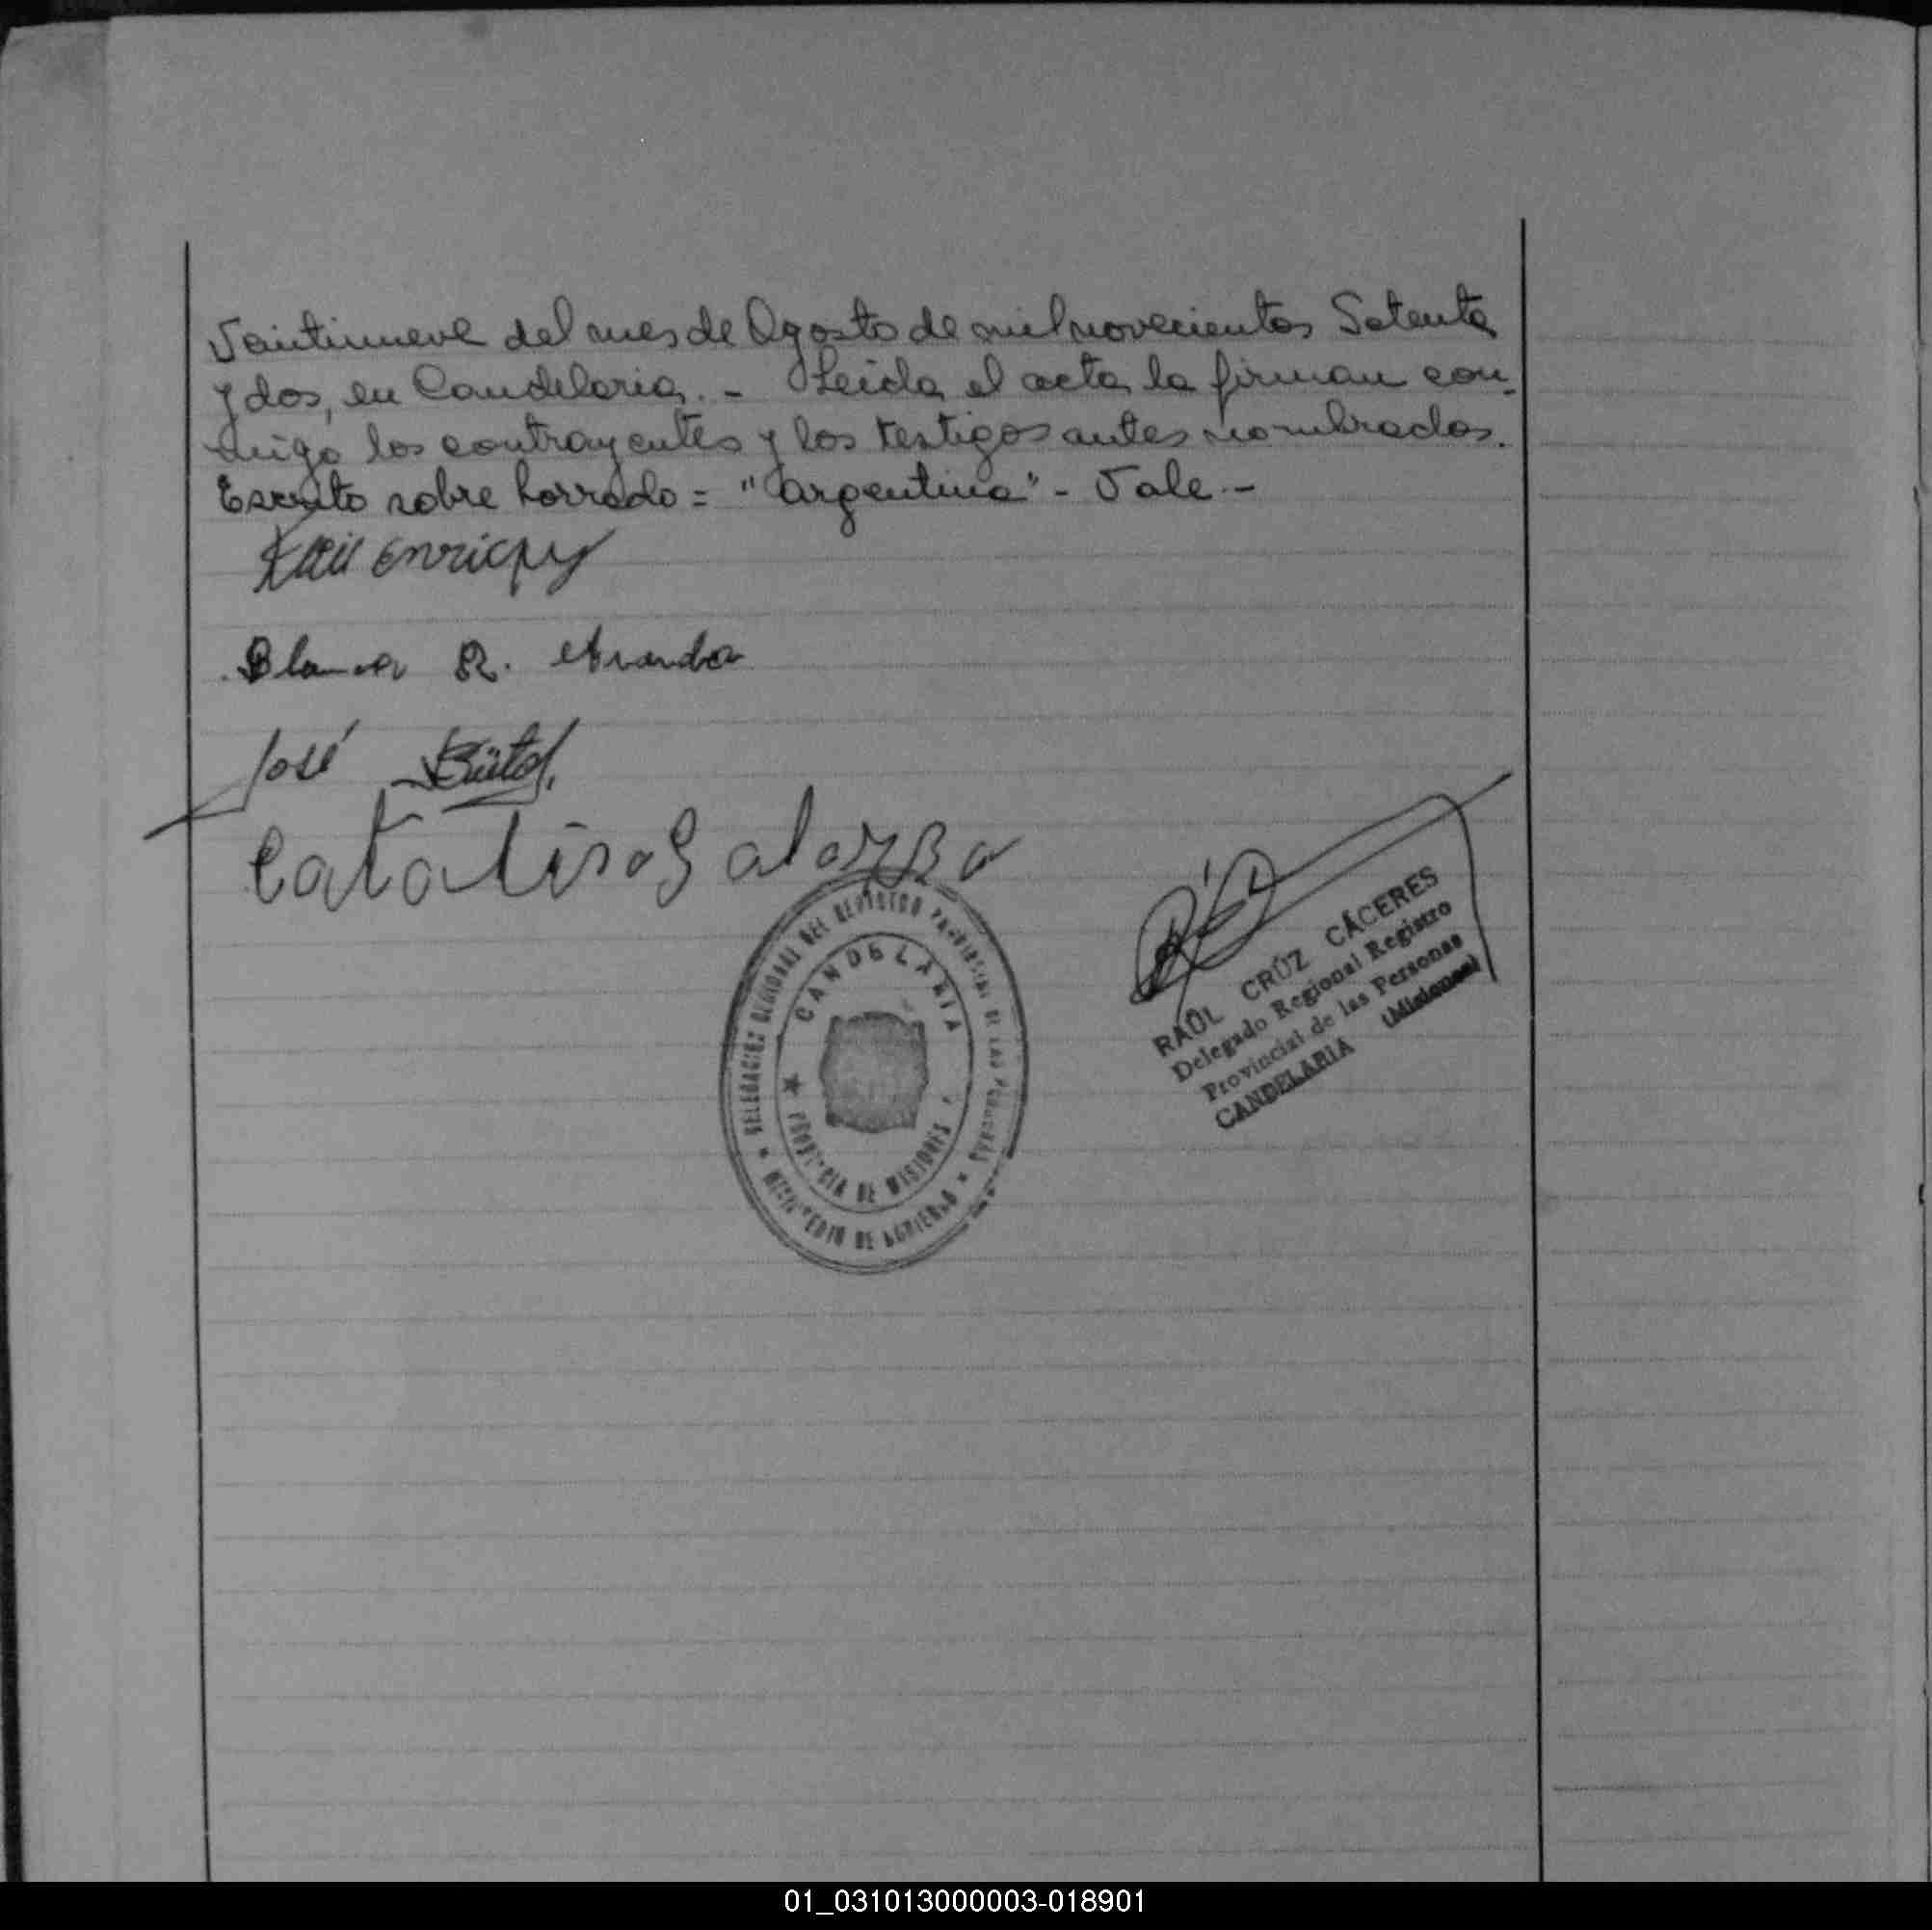 Veintinueve del mes de Agosto de mil novecientos Setenta
y dos, en Candelaria. - Leída el acta la firman con-
migo los contrayentes y los testigos antes nombrados.
Escrito sobre borrado = "argentina" - Vale. -
Blanca R. Aranda
José
Catalina Galarza
DELEGACION REGIONAL DEL REGISTRO PROVINCIAL DE LAS PERSONAS
CANDELARIA
PROVINCIA DE MISIONES
MINISTERIO DE GOBIERNO
RAÚL CRÚZ CÁCERES
Delegado Regional Registro
Provincial de las Personas
CANDELARIA (Misiones)
01_031013000003-018901